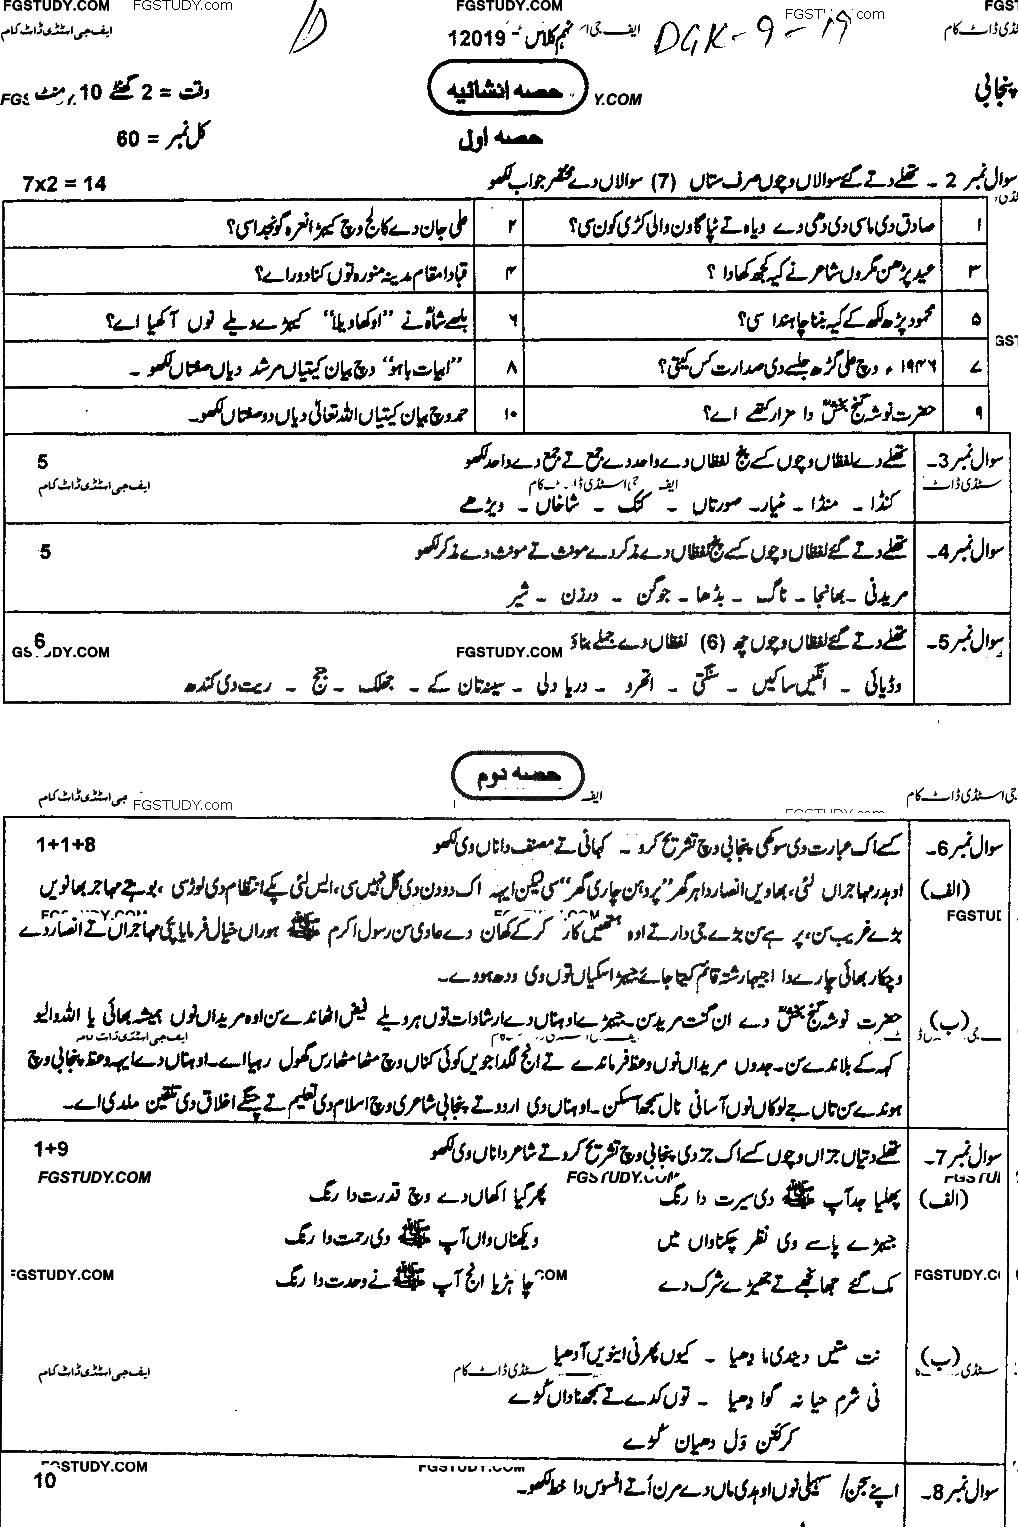 FGSTUDY.COM FGSTUDY.com FGSTUDY.COM FGSTUDY.com FGS
ایف جی اسٹڈی ڈاٹ کام 12019 - نہم کلاس ایف جی ا DGK-9-19 ڈی ڈاٹ کام
پنجابی حصہ انشائیہ Y.COM وقت = 2 گھنٹے 10 منٹ
حصہ اول کل نمبر = 60
سوال نمبر 2 ۔ تھلے دتے گئے سوالاں وچوں صرف ستاں (7) سوالاں دے مختصر جواب لکھو 7x2 = 14
۱ صادق دی ماسی دی دھی دے ویاہ تے ٹپا گاون والی کڑی کون سی؟ ۲ علی جان دے کالج وچ کیہڑا نعرہ گونجدا سی؟
۳ عید پڑھن مگروں شاعر نے کیہ کجھ کھادا ؟ ۴ قبا دا مقام مدینہ منورہ توں کنا دور اے؟
۵ محمود پڑھ لکھ کے کیہ بننا چاہندا سی؟ ۶ بلھے شاہؒ نے "اوکھا ویلا" کیہڑے ویلے نوں آکھیا اے؟
GST
۷ ۱۹۴۶ء وچ علی گڑھ جلسے دی صدارت کس کیتی؟ ۸ "ابیات باہو" وچ بیان کیتیاں مرشد دیاں صفتاں لکھو ۔
۹ حضرت نوشہ گنج بخشؒ دا مزار کتھے اے؟ ۱۰ حمد وچ بیان کیتیاں اللہ تعالیٰ دیاں دو صفتاں لکھو۔
سوال نمبر 3۔ تھلے دے لفظاں وچوں کسے پنج لفظاں دے واحد دے جمع تے جمع دے واحد لکھو 5
سٹڈی ڈاٹ ایف جی اسٹڈی ڈاٹ کام ایف جی اسٹڈی ڈاٹ کام
کنڈا ۔ منڈا ۔ ٹیار۔ صورتاں ۔ کنک ۔ شاخاں ۔ ویڑھے
سوال نمبر 4۔ تھلے دتے گئے لفظاں وچوں کسے پنج لفظاں دے مذکر دے مونث تے مونث دے مذکر لکھو 5
مریدنی ۔ بھانجا ۔ ناگ ۔ بڈھا ۔ جوگن ۔ درزن ۔ شیر
سوال نمبر 5۔ تھلے دتے گئے لفظاں وچوں چھ (6) لفظاں دے جملے بناؤ 6
FGSTUDY.COM GS UDY.COM
وڈیائی ۔ انگلیں ساکیں ۔ سنگتی ۔ اتھرو ۔ دریا دلی ۔ سینہ تان کے ۔ جھلک ۔ جج ۔ ریت دی کندھ
حصہ دوم
جی اسٹڈی ڈاٹ کام ایف FGSTUDY.com جی اسٹڈی ڈاٹ کام
سوال نمبر 6۔ کسے اک عبارت دی سوکھی پنجابی وچ تشریح کرو ۔ کہانی تے مصنف دا ناں وی لکھو 1+1+8
(الف) اوہدر مہاجراں لئی، بھاویں انصار دا ہر گھر "پروہن چاری گھر" سی لیکن ایہہ اک دو دن دی گل نہیں سی، ایس لئی پکے انتظام دی لوڑ سی ، بوہتے مہاجر بھانویں
FGSTUDY.COM FGSTUDY.COM FGSTUD
بڑے غریب سن، پر ہے سن بڑے جی دار تے اوہ ہتھیں کار کرکے کھان دے عادی سن رسول اکرم ﷺ ہوراں خیال فرمایا پئی مہاجراں تے انصار دے
وچکار بھائی چارے دا اجیہا رشتہ قائم کیتا جائے جیہڑا سکیاں توں وی ودھ ہووے۔
(ب) حضرت نوشہ گنج بخشؒ دے ان گنت مرید سن۔ جیہڑے اوہناں دے ارشادات توں ہر ویلے فیض اٹھاندے سن اوہ مریداں نوں ہمیشہ بھائی یا اللہ والیو
ایف جی اسٹڈی ڈاٹ کام
کہہ کے بلاندے سن۔ جدوں مریداں نوں وعظ فرماندے تے انج لگدا جویں کوئی کناں وچ مٹھا مٹھا رس گھول رہیا اے۔ اوہناں دے ایہہ وعظ پنجابی وچ
ہوندے سن تاں جے لوکاں نوں آسانی نال سمجھا سکن۔ اوہناں دی اردو تے پنجابی شاعری وچ اسلام دی تعلیم تے چنگے اخلاق دی تلقین ملدی اے۔
سوال نمبر 7۔ تھلے دتیاں جزاں وچوں کسے اک جز دی پنجابی وچ تشریح کرو تے شاعر دا ناں وی لکھو 1+9
FGSTUDY.COM FGSTUDY.COM FGSTUI
(الف) پھلیا جد آپ ﷺ دی سیرت دا رنگ پھر گیا اکھاں دے وچ قدرت دا رنگ
جیہڑے پاسے وی نظر چکناواں میں ویکھناں واں آپ ﷺ دی رحمت دا رنگ
FGSTUDY.COM COM FGSTUDY.C
مک گئے جھانجے تے جھیڑے شرک دے چاہڑیا انج آپ ﷺ نے وحدت دا رنگ
(ب) نت متیں دیندی ما دھیا ۔ کیوں پھرنی ایں اینویں آ دھیا
سٹڈی سٹڈی ڈاٹ کام ایف جی اسٹڈی ڈاٹ کام
نی شرم حیا نہ گوا دھیا ۔ توں کدے تے سمجھ نداں کڑے
کر کتن ول دھیان کڑے
FGSTUDY.COM FGSTUDY.COM
سوال نمبر 8۔ اپنے سجن/ سہیلی نوں اوہدی ماں دے مرن اُتے افسوس دا خط لکھو۔ 10